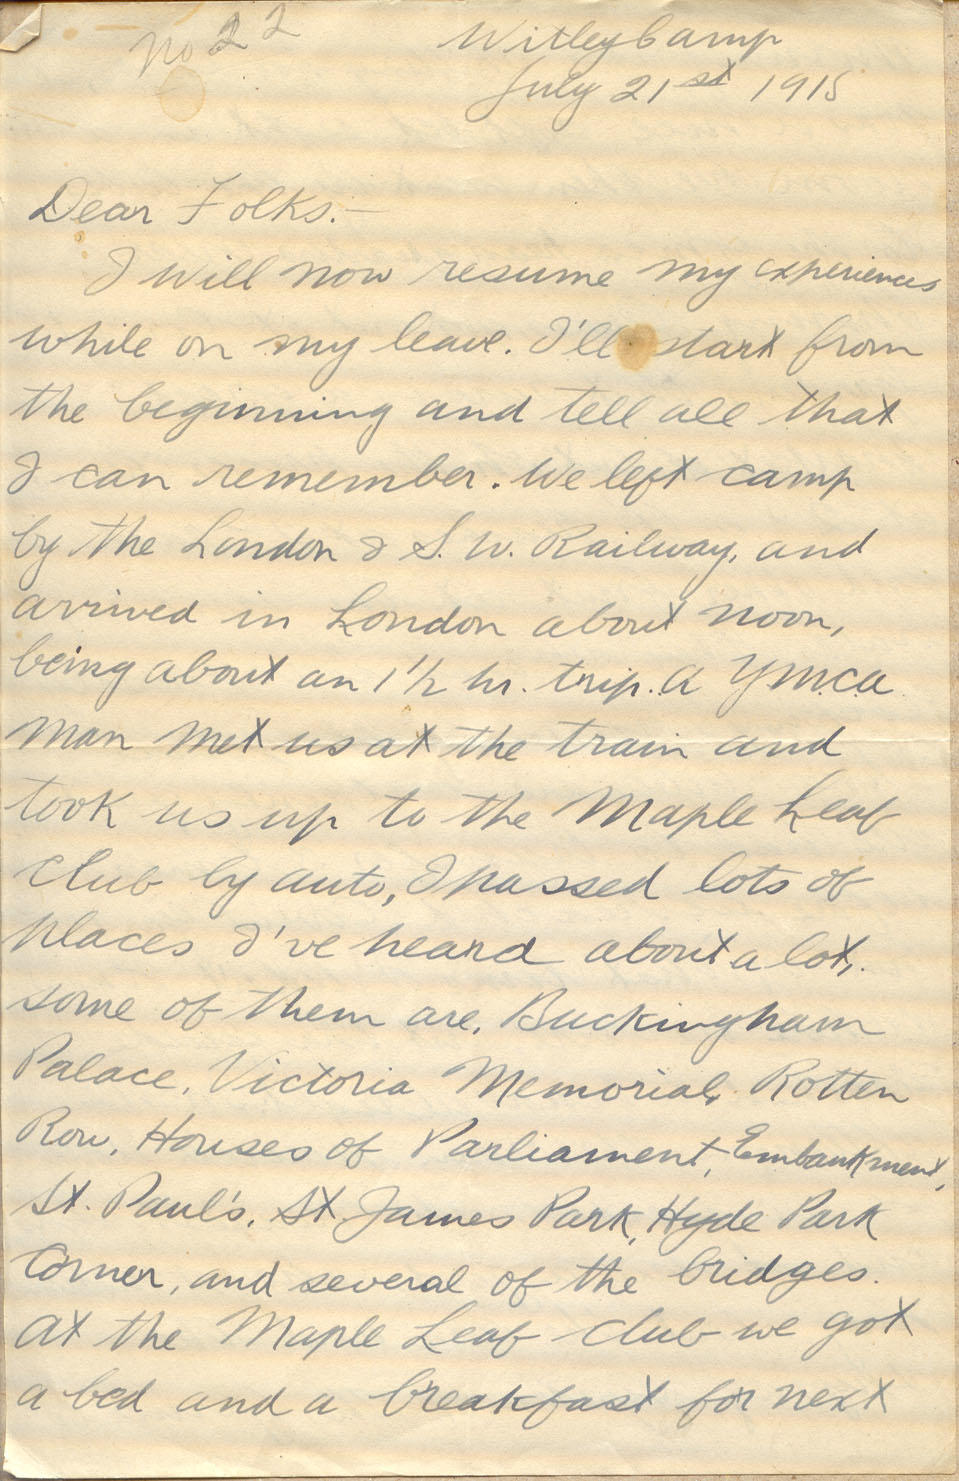 No 22
Witley Camp
July 21st 1918
Dear Folks:—
I will now resume my experiences
while on my leave. I'll start from
the beginning and tell all that
I can remember. We left camp
by the London & S. W. Railway, and
arrived in London about noon,
being about an 1½ hr. trip. A Y.M.C.A
man met us at the train and
took us up to the Maple Leaf
Club by auto, I passed lots of
places I've heard about a lot,.
some of them are, Buckingham
Palace, Victoria Memorial, Rotten
Row, Houses of Parliament, Embankment,
St. Paul's, St James Park, Hyde Park
Corner, and several of the bridges.
At the Maple Leaf Club we got
a bed and a breakfast for next